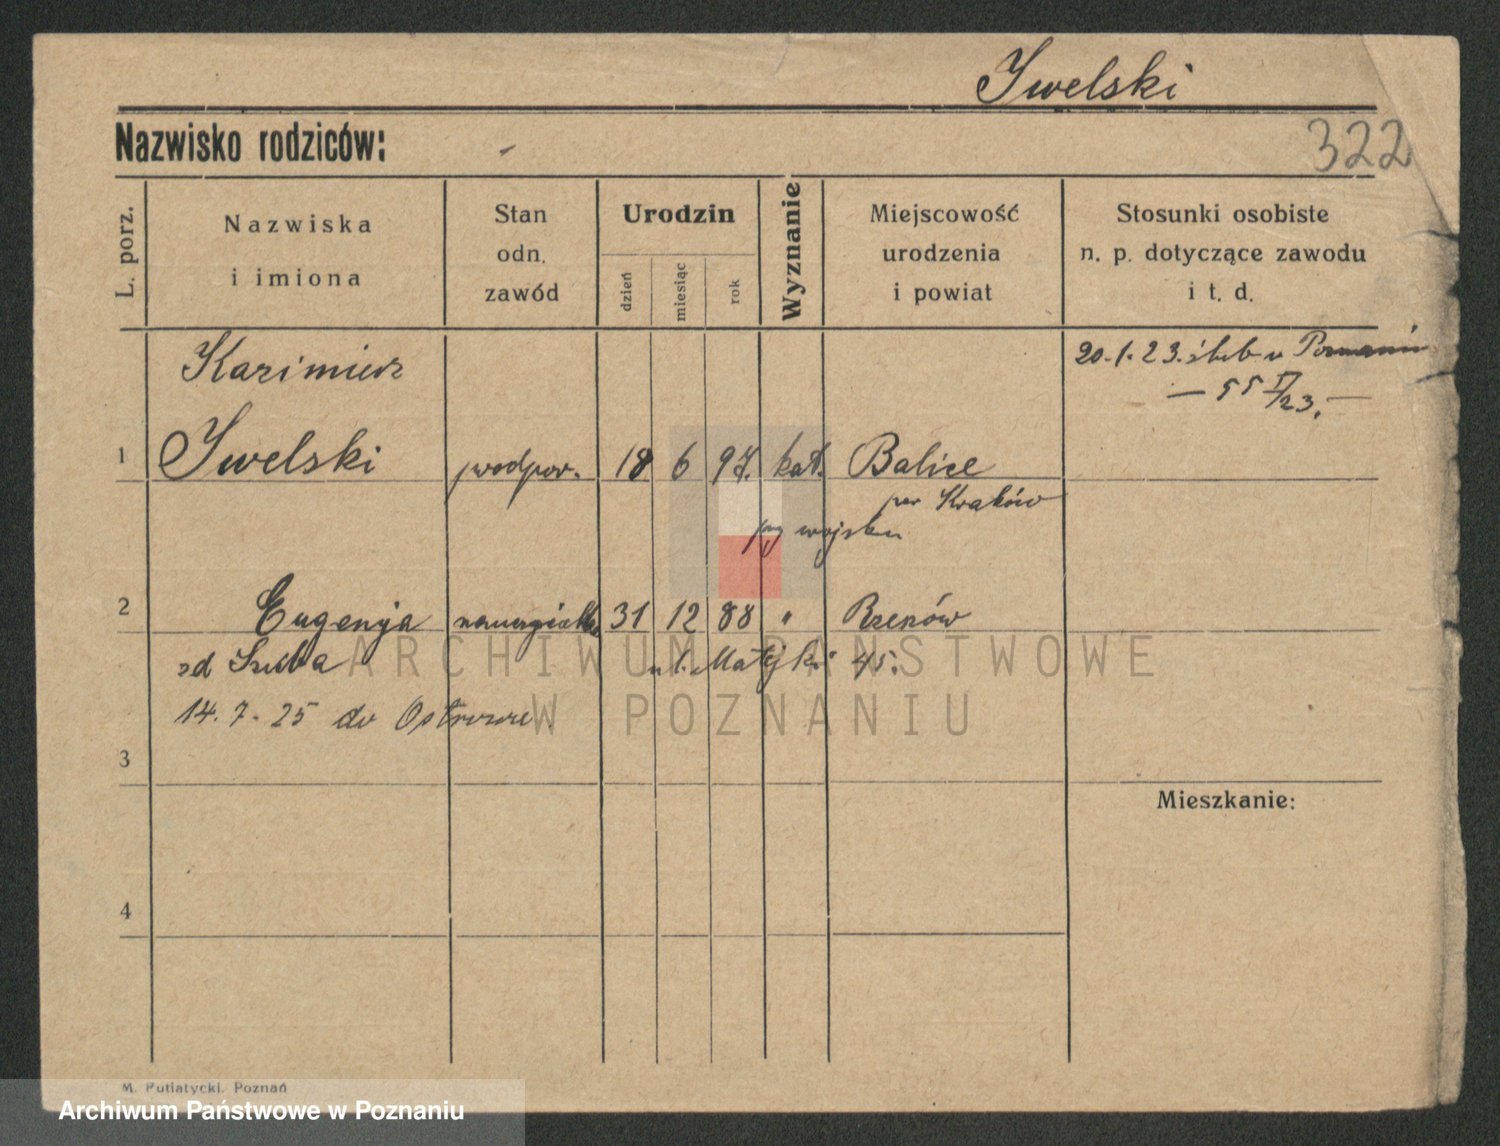 Iwelski
Nazwisko rodziców: -
322
L. porz.
Nazwiska
i imiona
Stan
odn.
zawód
Urodzin
dzień
miesiąc
rok
Wyznanie
Miejscowość
urodzenia
i powiat
Stosunki osobiste
n. p. dotyczące zawodu
i t. d.
Kazimierz
20. 1. 23. ślub w Poznaniu
— 55 I/23. —
1 Iwelski podpor. 18 6 97. kat. Balice
pow Kraków
przy wojsku
2 Eugenja 31 12 88 "
zd ul. Matejki 45.
14. 7. 25 do Ostrowa.
3
Mieszkanie:
4
M. Putiatycki. Poznań
ARCHIWUM PAŃSTWOWE
W POZNANIU
Archiwum Państwowe w Poznaniu